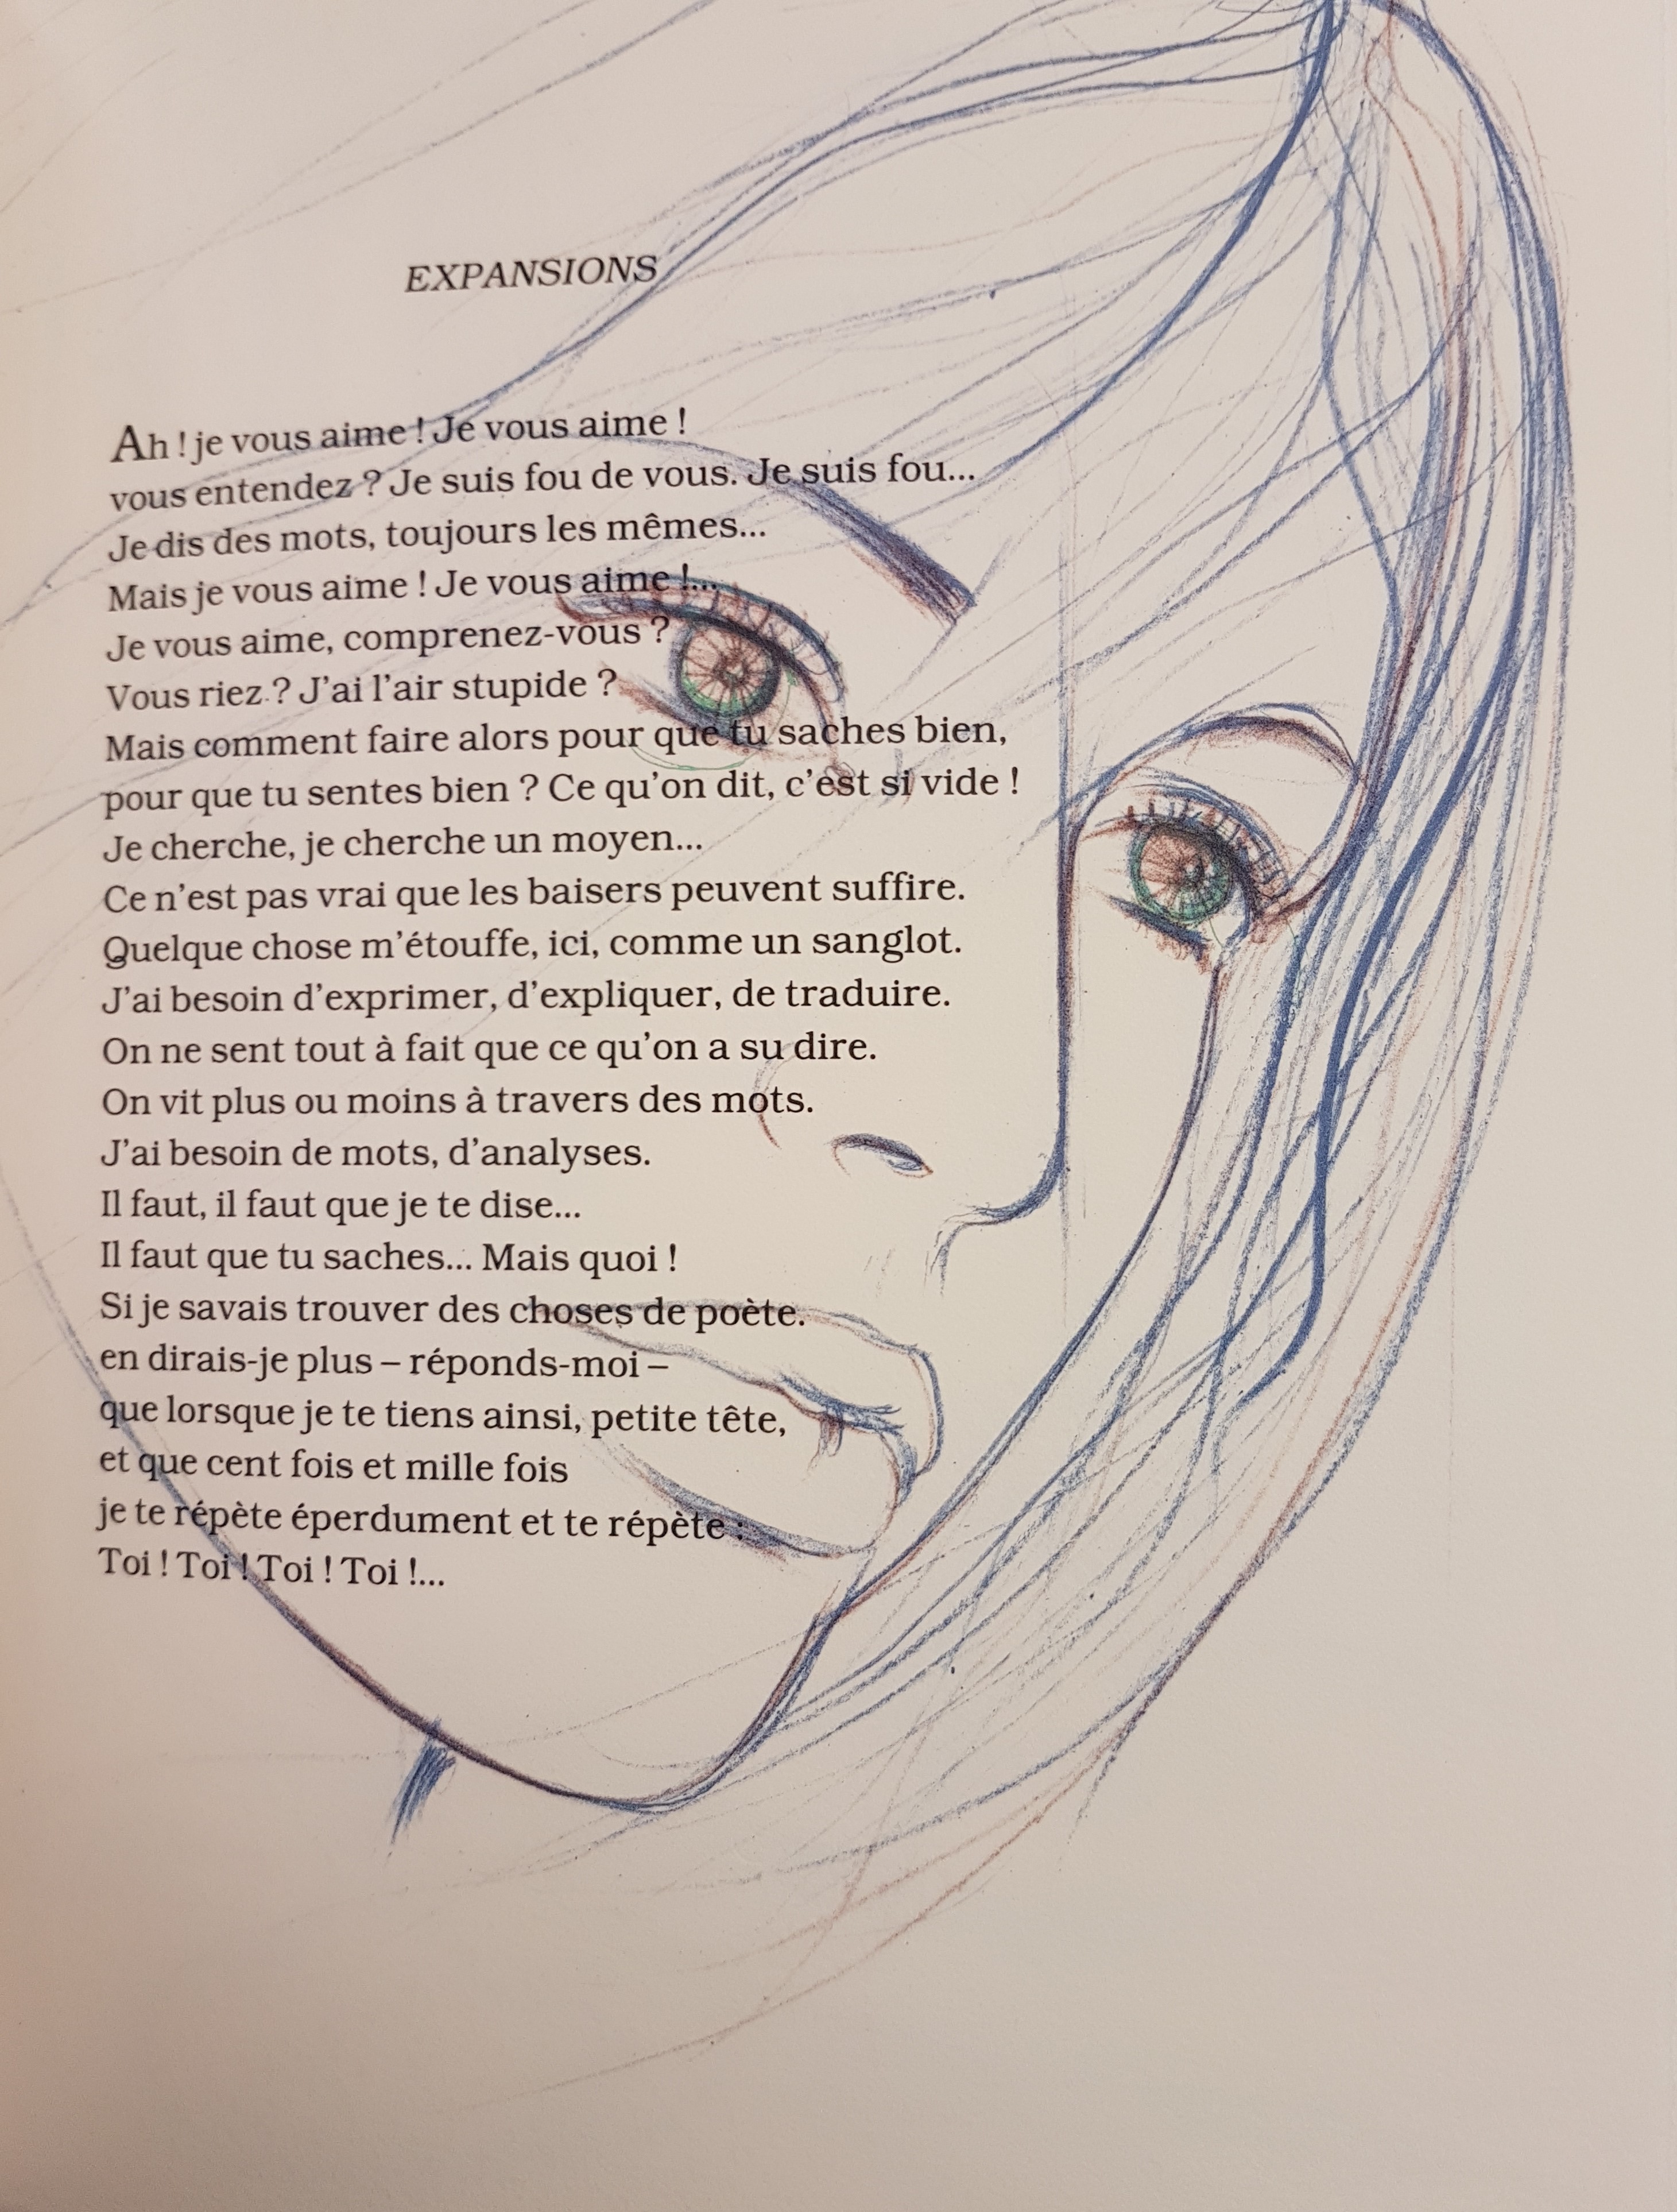 EXPANSIONS
Ah ! je vous aime ! Je vous aime !
vous entendez ? Je suis fou de vous. Je suis fou...
Je dis des mots, toujours les mêmes...
Mais je vous aime ! Je vous aime !...
Je vous aime, comprenez-vous ?
Vous riez ? J'ai l'air stupide ?
Mais comment faire alors pour que tu saches bien,
pour que tu sentes bien ? Ce qu'on dit, c'est si vide !
Je cherche, je cherche un moyen...
Ce n'est pas vrai que les baisers peuvent suffire.
Quelque chose m'étouffe, ici, comme un sanglot.
J'ai besoin d'exprimer, d'expliquer, de traduire.
On ne sent tout à fait que ce qu'on a su dire.
On vit plus ou moins à travers des mots.
J'ai besoin de mots, d'analyses.
Il faut, il faut que je te dise...
Il faut que tu saches... Mais quoi !
Si je savais trouver des choses de poète.
en dirais-je plus – réponds-moi –
que lorsque je te tiens ainsi, petite tête,
et que cent fois et mille fois
je te répète éperdument et te répète :
Toi ! Toi ! Toi ! Toi !...